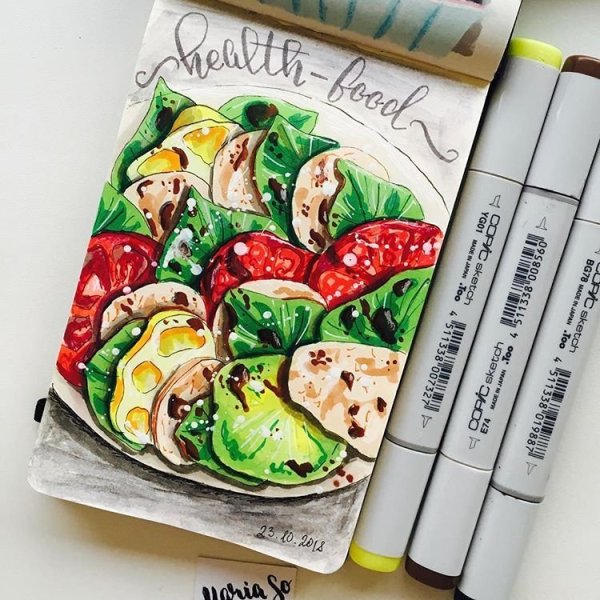 health-food
23.10.2018
Maria So
COPIC sketch
YG01
MADE IN JAPAN
.Too
4 511338 007327
COPIC sketch
E74
MADE IN JAPAN
.Too
4 511338 008560
COPIC sketch
BG78
MADE IN JAPAN
.Too
4 511338 019887